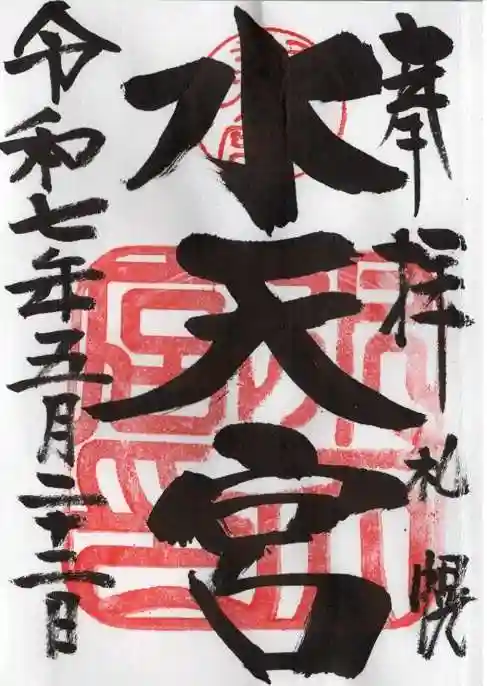 奉拝
札幌
水天宮
令和七年五月二十二日